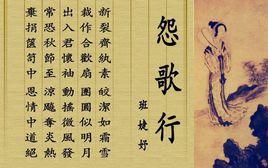 怨歌行
班婕妤
新裂齊紈素 皎潔如霜雪
裁作合歡扇 團圓似明月
出入君懷袖 動搖微風發
常恐秋節至 涼飈奪炎熱
棄捐篋笥中 恩情中道絕